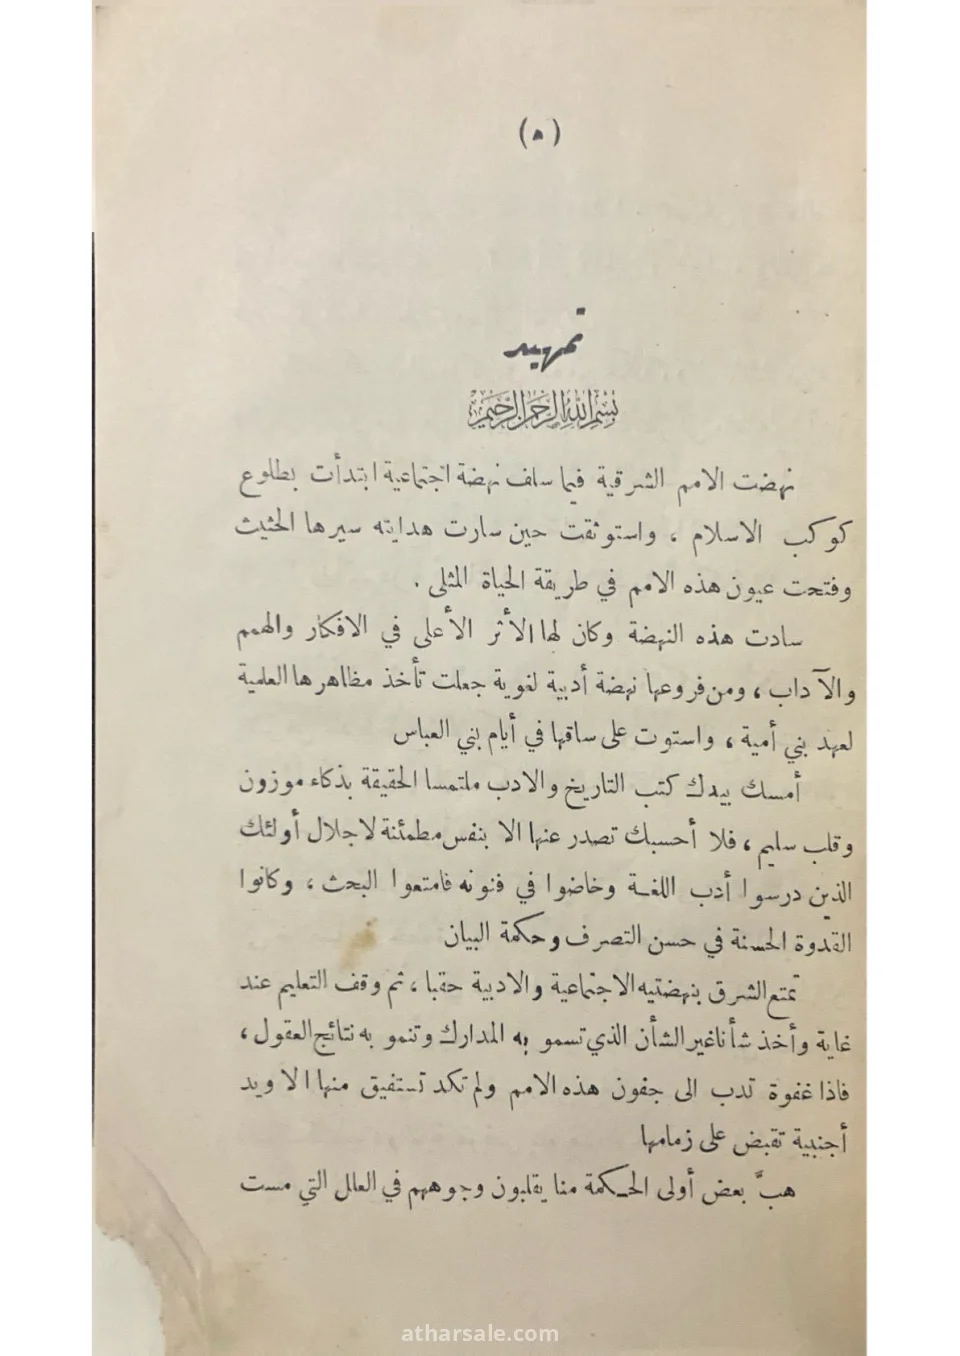 (٥)
تمهيد
بسم الله الرحمن الرحيم
نهضت الامم الشرقية فيما سلف نهضة اجتماعية ابتدأت بطلوع
كوكب الاسلام ، واستوثقت حين سارت هدايته سيرها الحثيث
وفتحت عيون هذه الامم في طريقة الحياة المثلى .
سادت هذه النهضة وكان لها الأثر الأعلى في الافكار والهمم
والآداب ، ومن فروعها نهضة أدبية لغوية جعلت تأخذ مظاهرها العلمية
لعهد بني أمية ، واستوت على ساقها في أيام بني العباس
أمسك بيدك كتب التاريخ والادب ملتمسا الحقيقة بذكاء موزون
وقلب سليم ، فلا أحسبك تصدر عنها الا بنفس مطمئنة لاجلال أولئك
الذين درسوا أدب اللغة وخاضوا في فنونه فامتعوا البحث ، وكانوا
القدوة الحسنة في حسن التصرف وحكمة البيان
تمتع الشرق بنهضتيه الاجتماعية والادبية حقبا ، ثم وقف التعليم عند
غاية وأخذ شأنا غير الشأن الذي تسمو به المدارك وتنمو به نتائج العقول ،
فاذا غفوة تدب الى جفون هذه الامم ولم تكد تستفيق منها الا ويد
أجنبية تقبض على زمامها
هبَّ بعض أولى الحكمة منا يقلبون وجوههم في العلل التي مست
atharsale.com